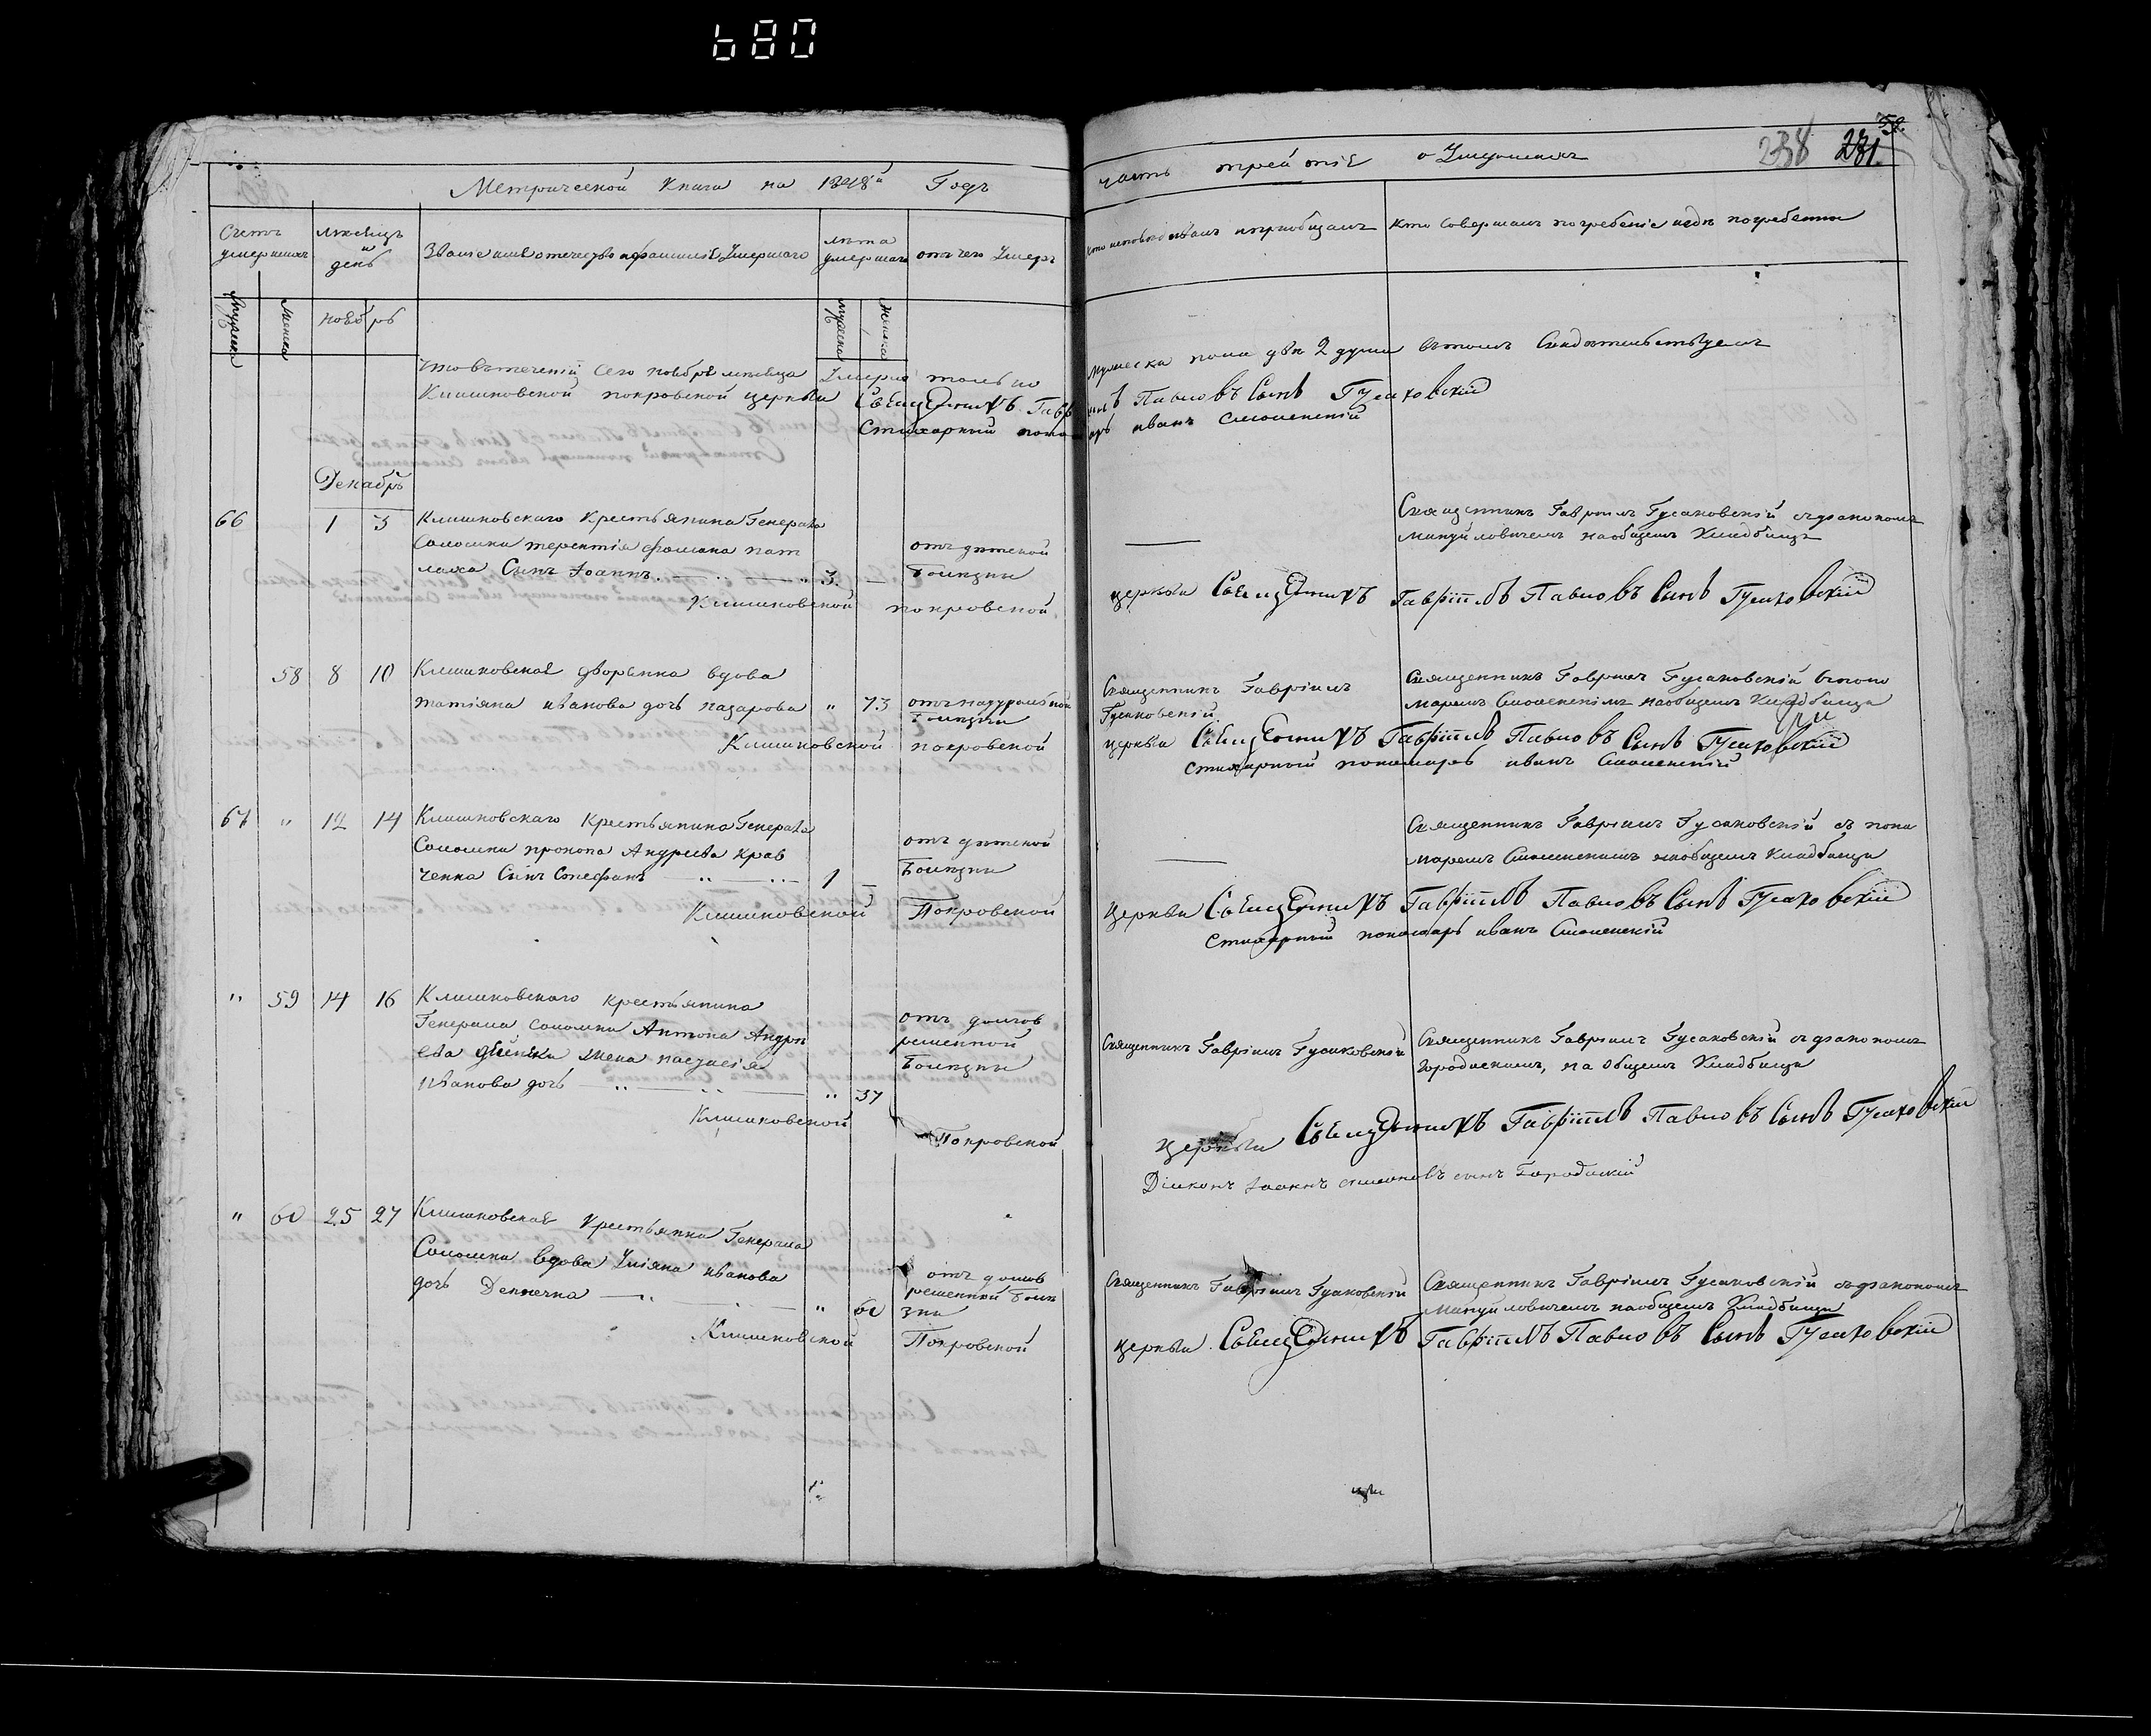 680
58.
238 231.
Метрической книги на 1848й Годъ
часть третіе о Умершихъ
Счетъ умершихъ
мѣсяцъ и день
Званіе имя отечество и фамиліе Умершаго
лѣта умершаго
отъ чего Умеръ
кто исповѣдовалъ и пріобщалъ
кто совершалъ погребеніе и гдѣ погребены
мужеска
женска
ноябрь
мужеска
женска
Что въ теченіи сего ноября мѣсяца Умерло только мужеска пола двѣ 2 души въ томъ свидѣтельствуемъ
Клишковской покровской церкви Священникъ Гавріилъ Павловъ Сынъ Гусаковскій
Стихарный пономарь иванъ Смоленскій
Декабрь
66 1 3 Клишковскаго крестьянина Генерала
Соломки терентія
сынъ Іоаннъ 3. —
отъ дѣтской
болѣзни
—
Священникъ Гавріилъ Гусаковскій съ дякономъ
Мануйловичемъ на общемъ кладбищѣ
Клишковской покровской церкви Священникъ Гавріилъ Павловъ Сынъ Гусаковскій
58 8 10 Клишковская дворянка вдова
татіяна иванова дочь назарова " 73
отъ натуральной
болѣзни
Священникъ Гавріилъ
Гусаковскій
Священникъ Гавріилъ Гусаковскій съ поно
маремъ Смоленскимъ на общемъ кладбищи
Клишковской покровской церкви Священникъ Гавріилъ Павловъ Сынъ Гусаковскій
стихарный пономарь иванъ Смоленскій
67 " 12 14 Клишковскаго крестьянина Генерала
Соломки прокопа Андреева крав
ченка Сынъ Стефанъ 1 —
отъ дѣтской
болѣзни
—
Священникъ Гавріилъ Гусаковскій съ поно
маремъ Смоленскимъ на общемъ кладбищи
Клишковской Покровской церкви Священникъ Гавріилъ Павловъ Сынъ Гусаковскій
стихарный пономарь иванъ Смоленскій
" 59 14 16 Клишковскаго крестьянина
Генерала соломки Антона Андре
ева жена
иванова дочь " 37
отъ долгов
ременной
болѣзни
Священникъ Гавріилъ Гусаковскій
Священникъ Гавріилъ Гусаковскій съ дякономъ
Городискимъ, на общемъ кладбищи
Клишковской Покровской церкви Священникъ Гавріилъ Павловъ Сынъ Гусаковскій
Діяконъ Іоаннъ симоновъ сынъ Городискій
" 60 25 27 Клишковская крестьянка Генерала
Соломки вдова Уліяна иванова
дочь " 60
отъ долгов
ременной болѣ
зни
Священникъ Гавріилъ Гусаковскій
Священникъ Гавріилъ Гусаковскій съ дякономъ
Мануйловичемъ на общемъ кладбищи
Клишковской Покровской церкви Священникъ Гавріилъ Павловъ Сынъ Гусаковскій